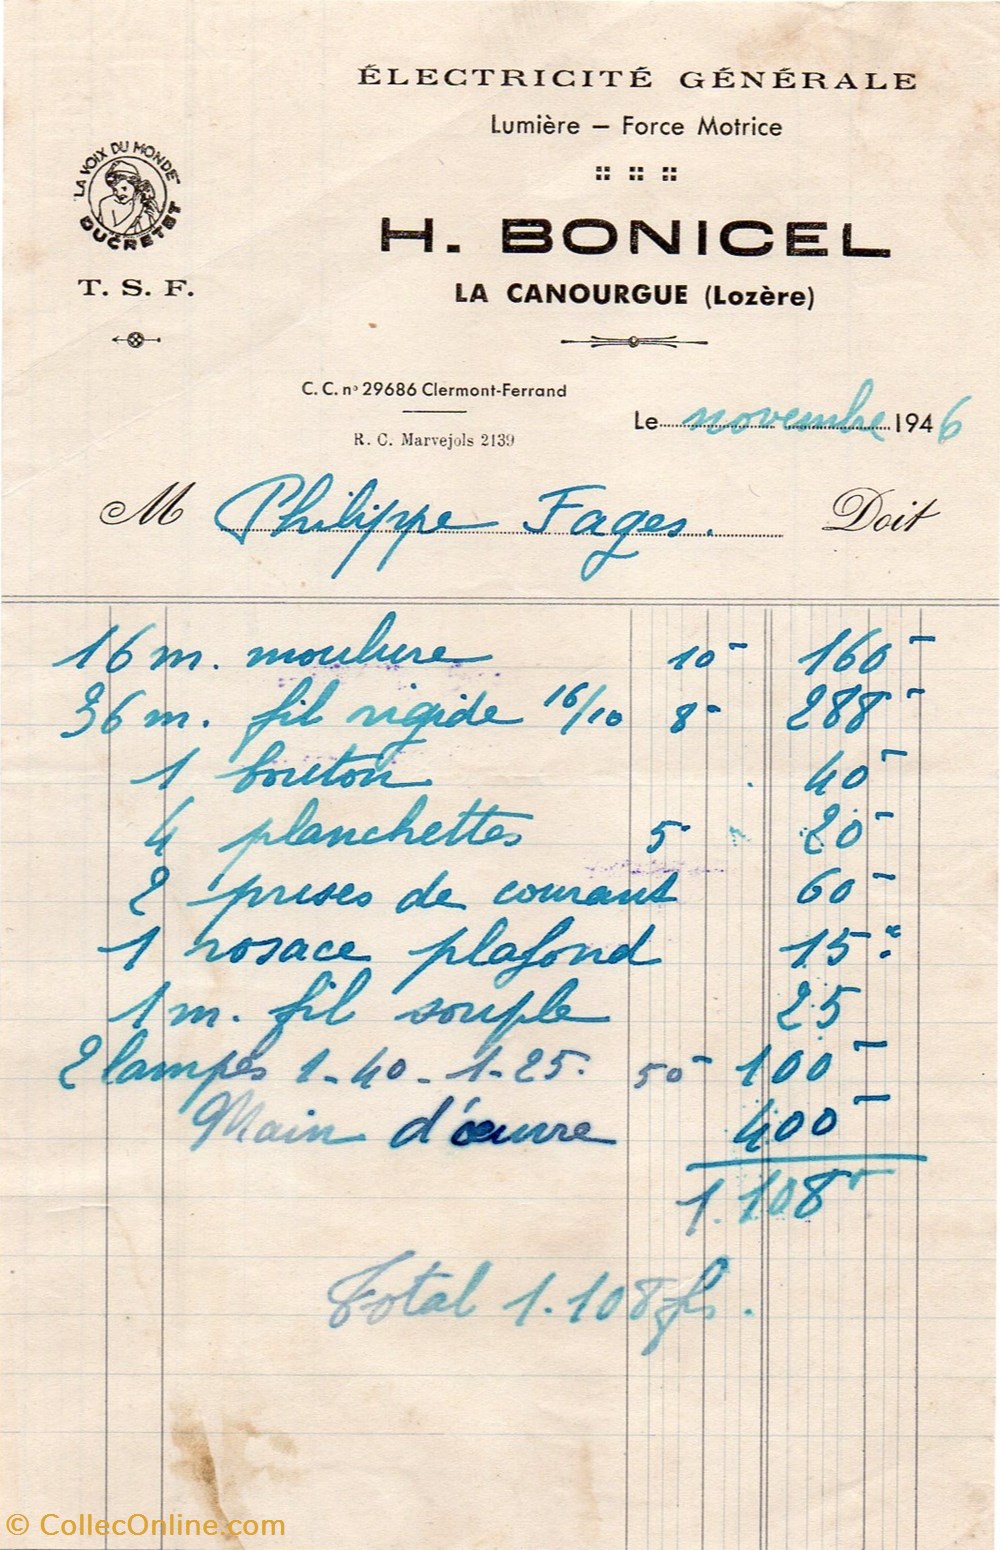 ÉLECTRICITÉ GÉNÉRALE
Lumière – Force Motrice
"LA VOIX DU MONDE"
DUCRETET
T. S. F.
H. BONICEL
LA CANOURGUE (Lozère)
C. C. nº 29686 Clermont-Ferrand
R. C. Marvejols 2139
Le novembre 1946
M Philippe Fages. Doit
16 m. moulure 10- 160-
36 m. fil rigide 16/10 8- 288-
1 bouton 40-
4 planchettes 5- 20-
2 prises de courant 60-
1 rosace plafond 15"
1 m. fil souple 25
2 lampes 1-40-1-25. 50- 100-
Main d'œuvre 400-
1.108-
Total 1.108 frs.
© CollecOnline.com